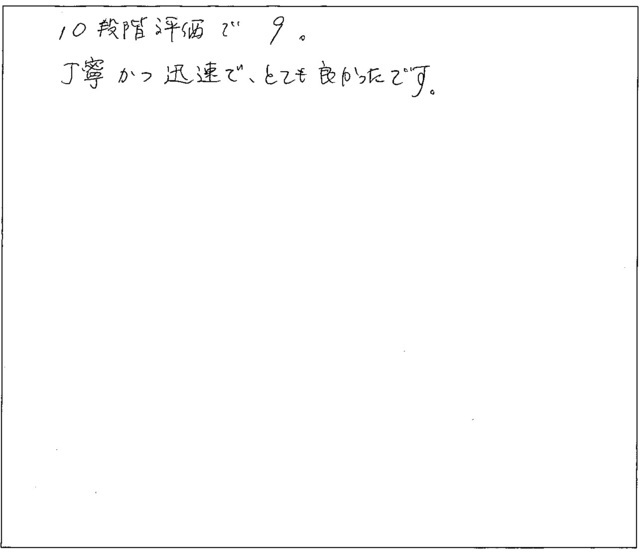 10段階評価で 9。
丁寧かつ迅速で、とても良かったです。